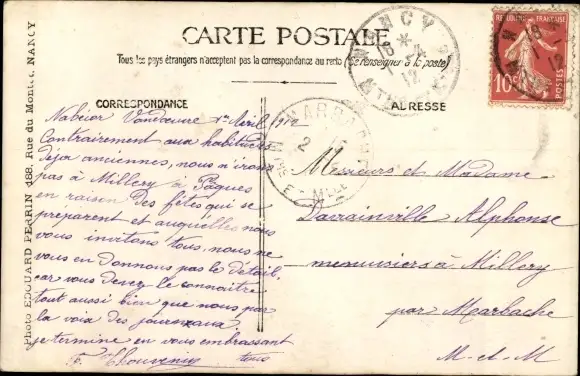 CARTE POSTALE
Tous les pays étrangers n'acceptent pas la correspondance au recto (Se renseigner à la poste)
CORRESPONDANCE
ADRESSE
Vandœuvre 1er Avril 1912
Contrairement aux habitudes
déja anciennes, nous n'irons
pas à Millery à Pâques
en raison des fêtes qui se
préparent et auquelles nous
vous invitons tous, nous ne
vous en donnons pas le détail,
car vous devez le connaitre
tout aussi bien que nous par
la voix des journaux.
je termine en vous embrassant
tous
F. Thouvenin
Messieurs et Madame
Darrainville Alphonse
menuisiers à Millery
par Marbache
M-et-M
Photo EDOUARD PERRIN 188, Rue du Montet, NANCY
REPUBLIQUE FRANÇAISE
10c
POSTES
NANCY
MARBACHE